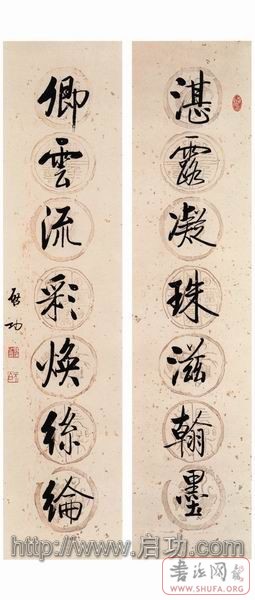 湛露凝珠滋翰墨
卿雲流彩煥絲綸
啟功
http://www.启功.com
书法网
WWW.SHUFA.COM